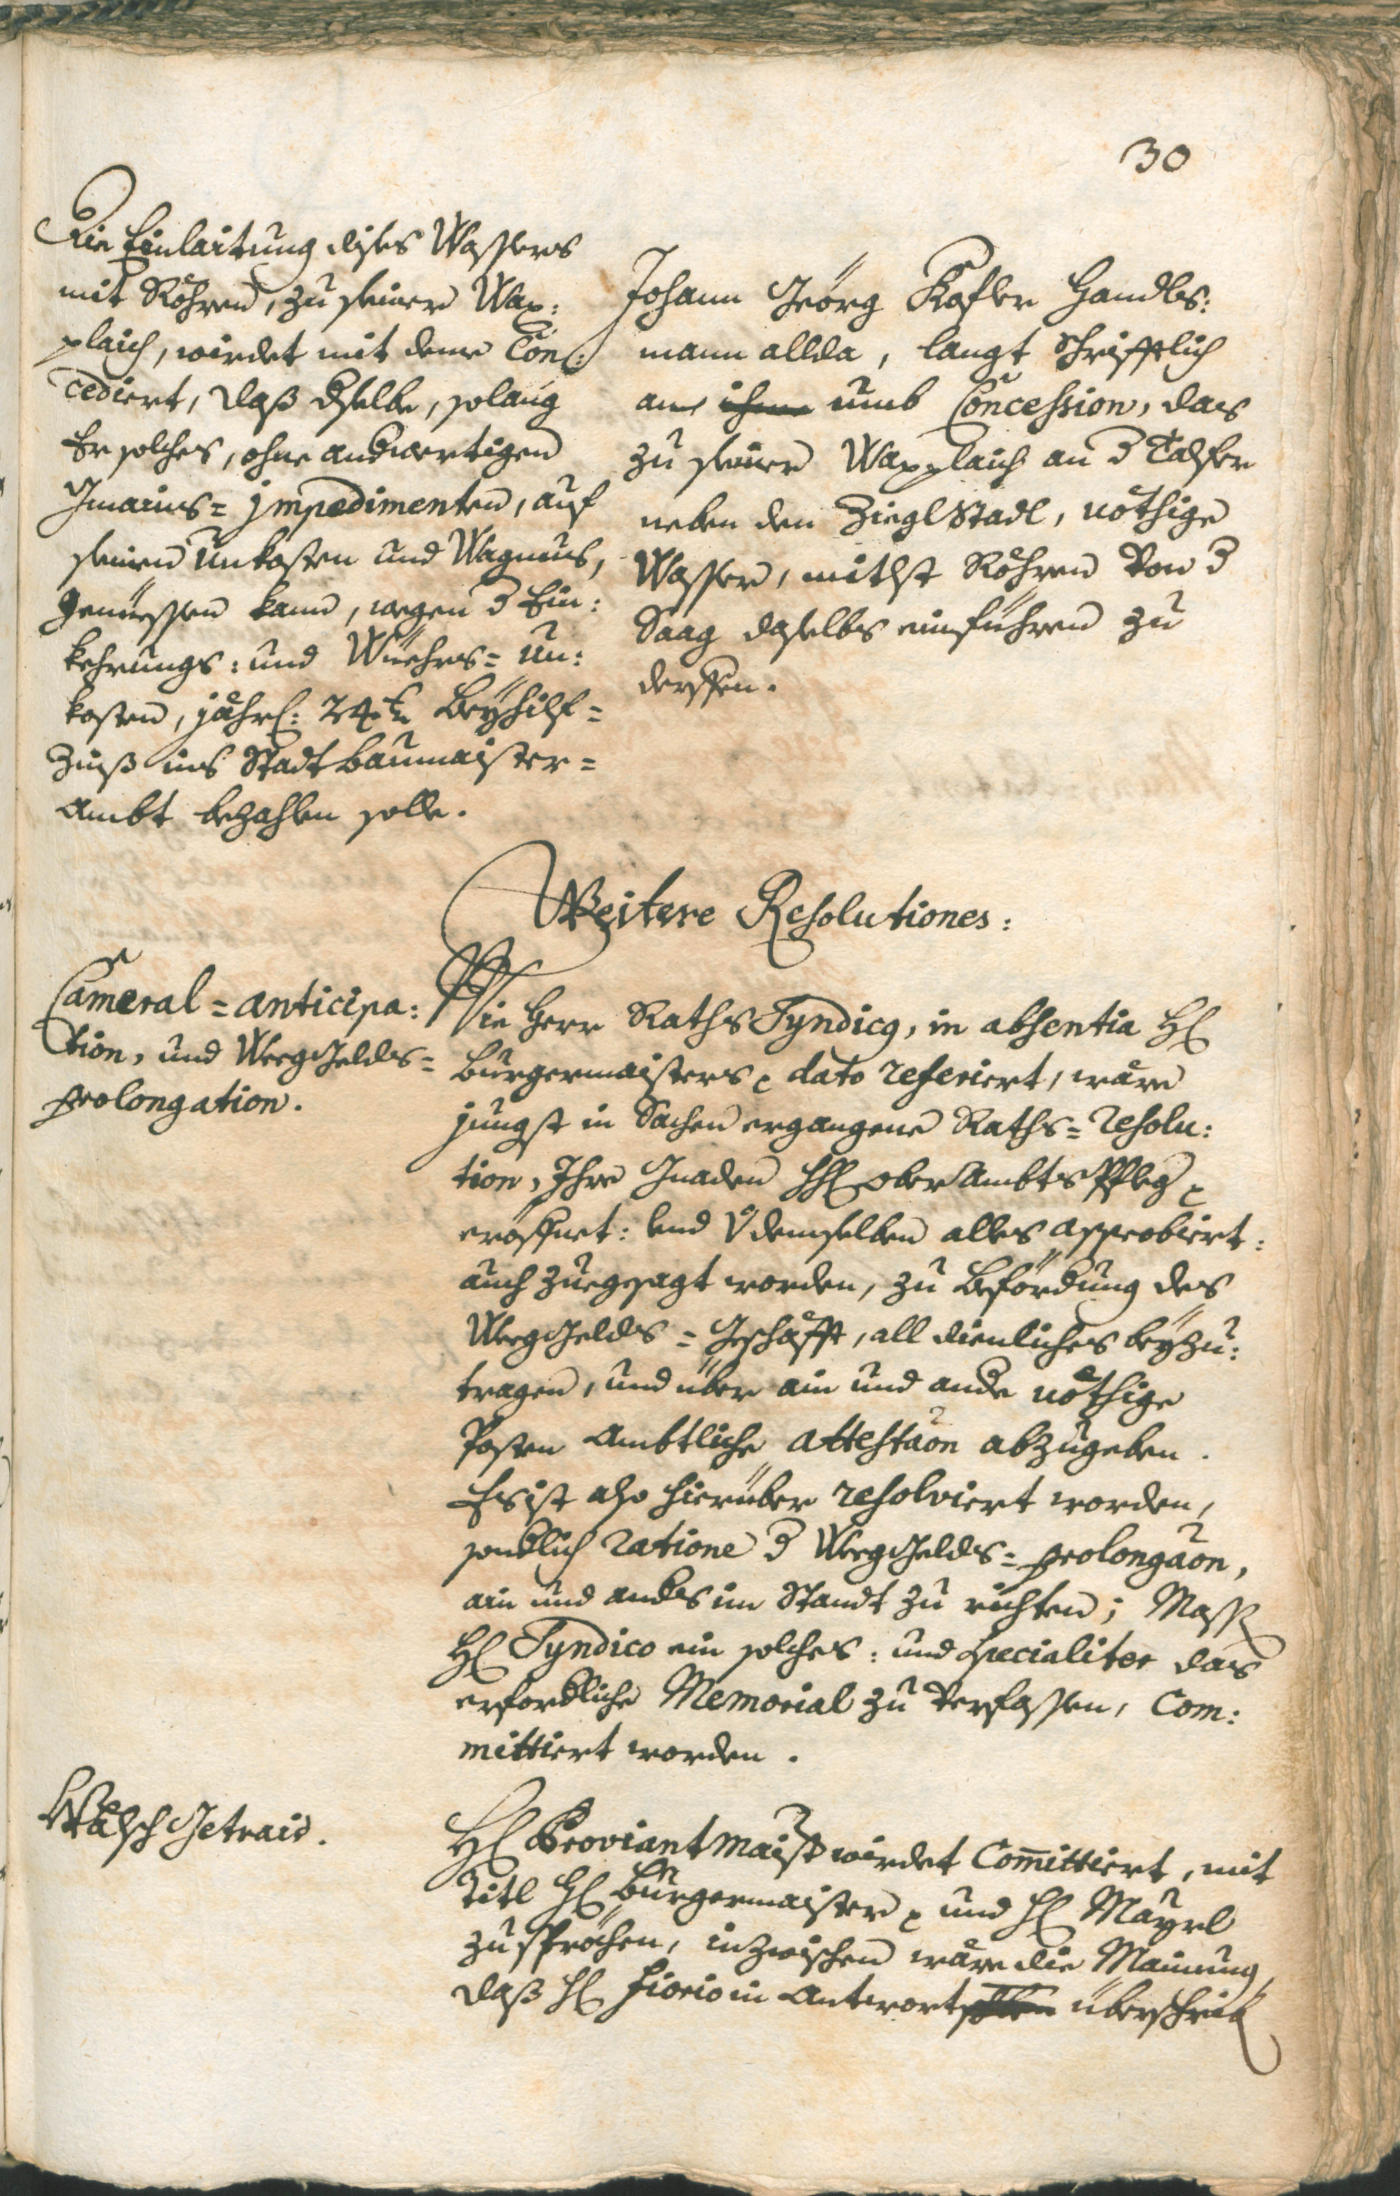 30
Die Einlaitung dises Wassers
mit Röhren, zu seiner Wax:
plaich, wirdet mit deme Con:
cediert, daß dselbe, solang
Er solches, ohne andwertigen
impedimenten, auf
seinen Unkosten und Wagnus,
geniessen kann, wegen d Ein:
kehrungs: und Wuehrs= Un:
kosten, jährl: 24 k Beyhilf=
Zinß ins Stadt Baumaister=
Ambt bezahlen solle.
Johann Jeörg Kofler Handls:
mann allda, langt schrifftlich
an umb Concession, das
zu seiner Waxplaich an d Talfer
neben den Ziegl Stadl, nöthige
Wasser, mitlst Röhren von d
Saag daselbs einführen zu
derffen.
Weitere Resolutiones:
Cameral=anticipa:
tion, und WeegGelds=
prolongation.
Wie Herr Raths Syndicus, in absentia H
Burgermaisters dato referiert, wäre
jungst in Sachen ergangene Raths=resolu:
tion, Ihro Gnaden H OberAmbts Pfleg
eröffnet: und v demselben alles approbiert:
auch zuegesagt worden, zu Befördung des
WeegGelds=Geschäfft, all dienliches beyzu:
tragen, und über ain und ande nöthige
Posten Ambtliche attestaon abzugeben.
Es ist also hierüber resolviert worden,
sondlich ratione d WeegGelds=prolongaon,
ain und andes im Standt zu richten; Mass
H Syndico ein solches: und specialiter das
erfordliche Memorial zu verfassen, Com:
mittiert worden.
Wälsch Getraid.
H Proviantmaist wirdet Committiert, mit
Titl H Burgermaister und H Mayrl
zu sprechen, inzwischen wäre die Mainung,
daß H Fiorio in Antwort überschrib